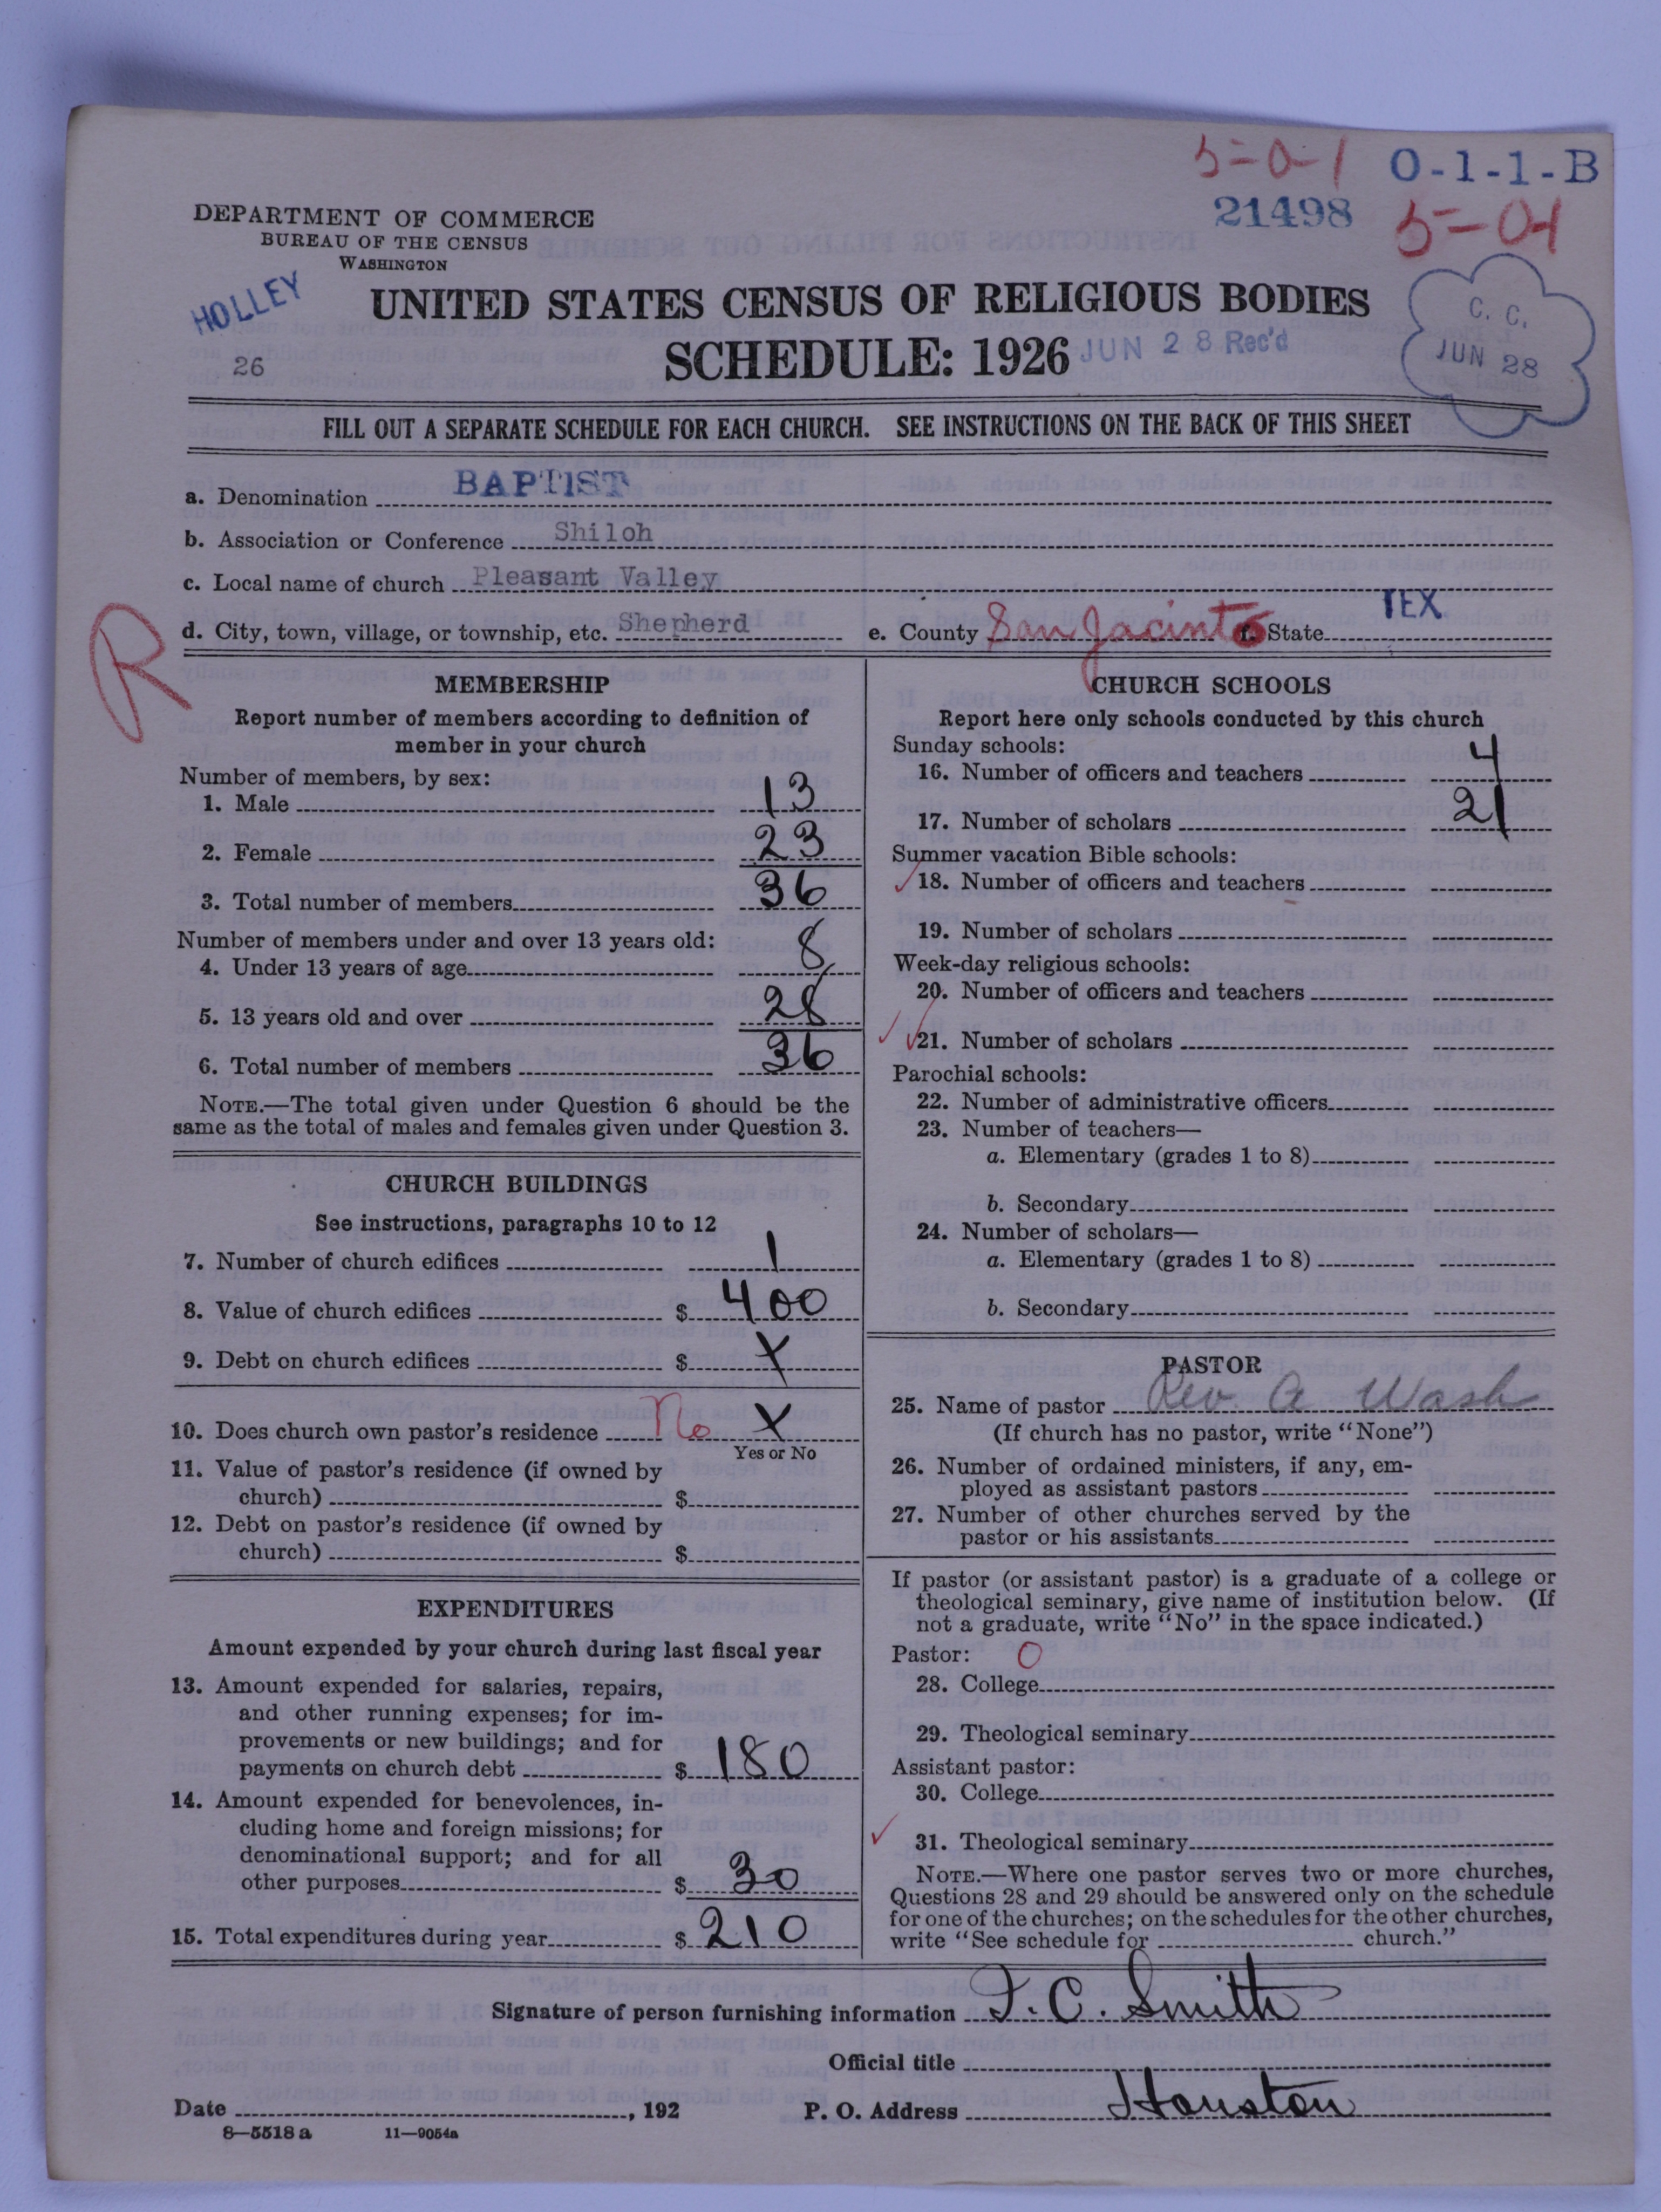 5-0-1 O-1-1-B
21498 5-01
DEPARTMENT OF COMMERCE
BUREAU OF THE CENSUS
WASHINGTON
HOLLEY
26
UNITED STATES CENSUS OF RELIGIOUS BODIES
SCHEDULE: 1926
JUN 28 Rec'd
C. C.
JUN 28
FILL OUT A SEPARATE SCHEDULE FOR EACH CHURCH. SEE INSTRUCTIONS ON THE BACK OF THIS SHEET
a. Denomination BAPTIST
b. Association or Conference Shiloh
c. Local name of church Pleasant Valley
R
d. City, town, village, or township, etc. Shepherd e. County San Jacinto f. State TEX.
MEMBERSHIP
Report number of members according to definition of
member in your church
Number of members, by sex:
1. Male 13
2. Female 23
3. Total number of members 36
Number of members under and over 13 years old:
4. Under 13 years of age 8
5. 13 years old and over 28
6. Total number of members 36
NOTE.—The total given under Question 6 should be the
same as the total of males and females given under Question 3.
CHURCH BUILDINGS
See instructions, paragraphs 10 to 12
7. Number of church edifices 1
8. Value of church edifices $ 400
9. Debt on church edifices $ X
10. Does church own pastor's residence No X
Yes or No
11. Value of pastor's residence (if owned by
church) $
12. Debt on pastor's residence (if owned by
church) $
EXPENDITURES
Amount expended by your church during last fiscal year
13. Amount expended for salaries, repairs,
and other running expenses; for im-
provements or new buildings; and for
payments on church debt $ 180
14. Amount expended for benevolences, in-
cluding home and foreign missions; for
denominational support; and for all
other purposes $ 30
15. Total expenditures during year $ 210
CHURCH SCHOOLS
Report here only schools conducted by this church
Sunday schools:
16. Number of officers and teachers 4
17. Number of scholars 21
Summer vacation Bible schools:
18. Number of officers and teachers
19. Number of scholars
Week-day religious schools:
20. Number of officers and teachers
21. Number of scholars
Parochial schools:
22. Number of administrative officers
23. Number of teachers—
a. Elementary (grades 1 to 8)
b. Secondary
24. Number of scholars—
a. Elementary (grades 1 to 8)
b. Secondary
PASTOR
25. Name of pastor Rev. A Wash
(If church has no pastor, write "None")
26. Number of ordained ministers, if any, em-
ployed as assistant pastors
27. Number of other churches served by the
pastor or his assistants
If pastor (or assistant pastor) is a graduate of a college or
theological seminary, give name of institution below. (If
not a graduate, write "No" in the space indicated.)
Pastor: O
28. College
29. Theological seminary
Assistant pastor:
30. College
31. Theological seminary
NOTE.—Where one pastor serves two or more churches,
Questions 28 and 29 should be answered only on the schedule
for one of the churches; on the schedules for the other churches,
write "See schedule for church."
Signature of person furnishing information J. C. Smith
Official title
Date , 192 P. O. Address Houston
8—5518 a 11—9054a